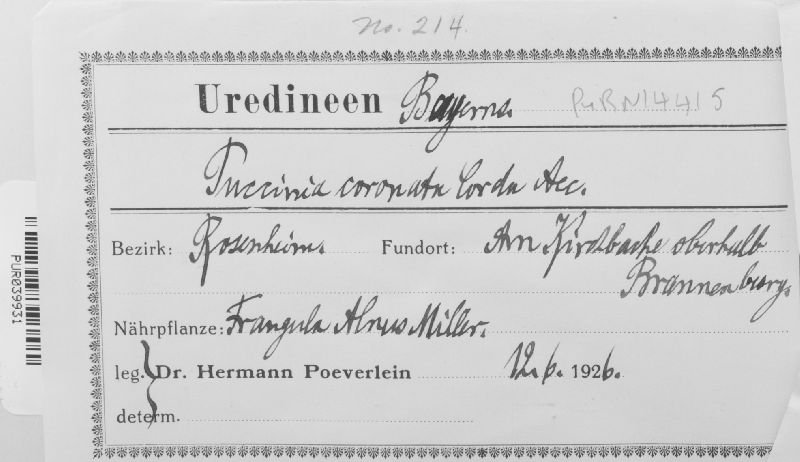 No. 214.
Uredineen Bayerns.
PURN14415
Puccinia coronata Corda Aec.
Bezirk: Rosenheim. Fundort: Am Kirchbache oberhalb
Brannenburg.
Nährpflanze: Frangula Alnus Miller.
leg. Dr. Hermann Poeverlein 12.6. 1926.
determ.
PUR039931